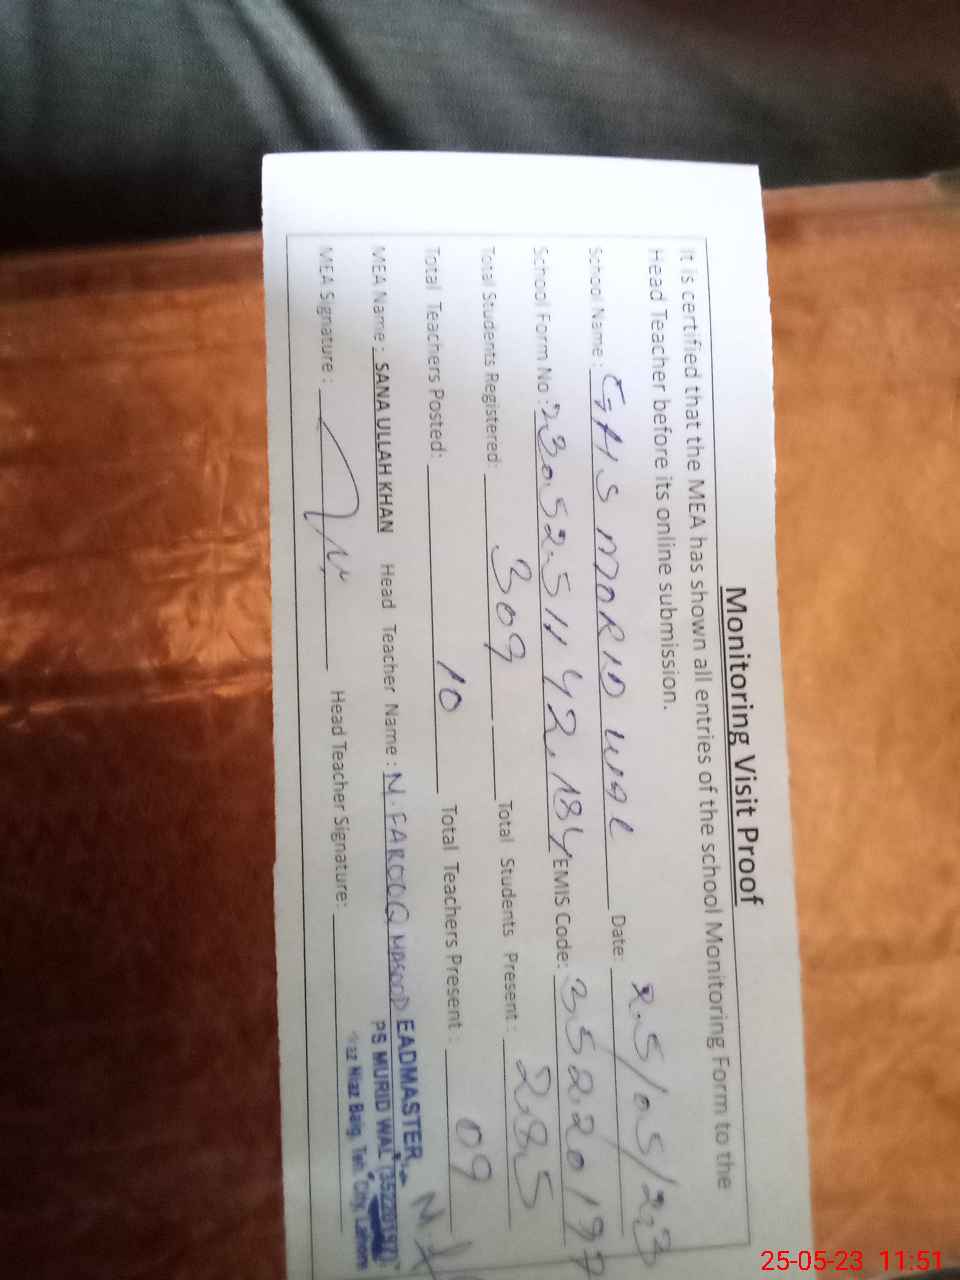 Monitoring Visit Proof
It is certified that the MEA has shown all entries of the school Monitoring Form to the
Head Teacher before its online submission.
School Name : GHS MORID WAL Date: 25/05/23
School Form No : EMIS Code: 35220197
Total Students Registered: 309 Total Students Present : 285
Total Teachers Posted: 10 Total Teachers Present : 09
MEA Name : SANA ULLAH KHAN Head Teacher Name : M. FAROOQ MASOOD
MEA Signature : Head Teacher Signature:
EADMASTER
PS MURID WAL (35220197)
az Niaz Baig, Teh City, Lahore
25-05-23 11:51